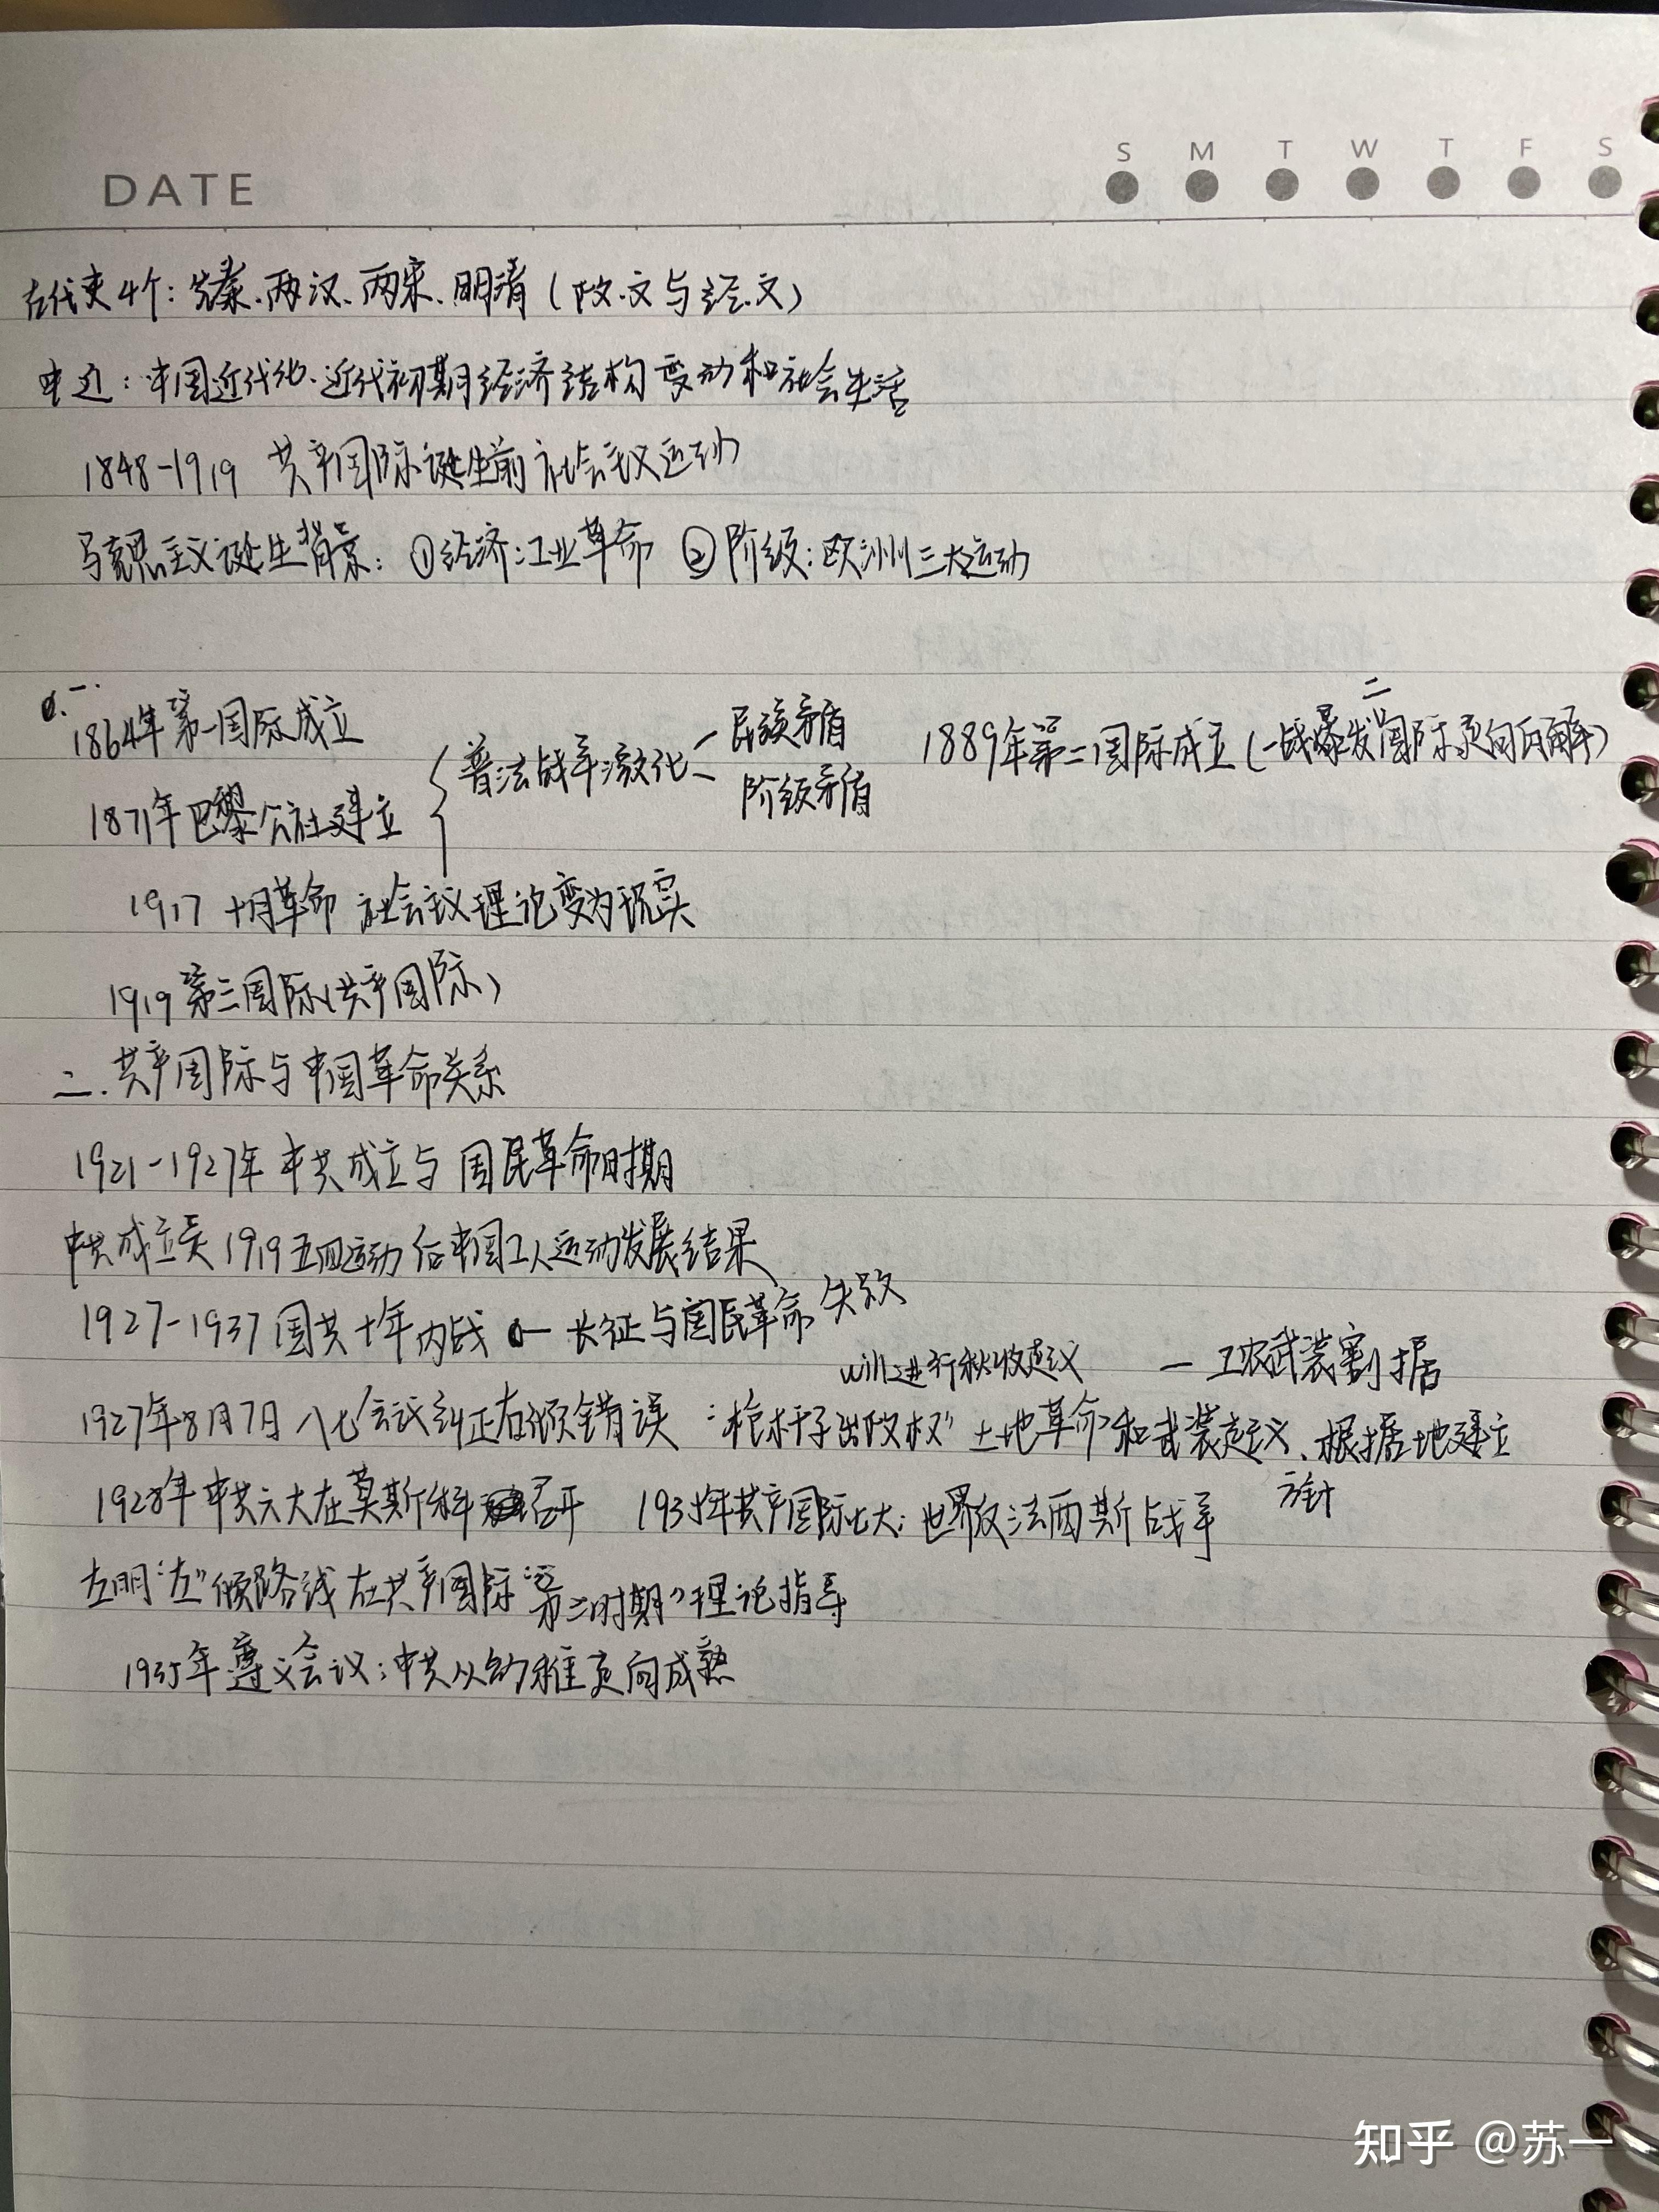 DATE
S M T W T F S
古代史4个：先秦、两汉、两宋、明清（政、文与经、文）
中近：中国近代化、近代初期经济结构变动和社会生活
1848-1919 共产国际诞生前社会主义运动
马克思主义诞生背景：①经济：工业革命 ②阶级：欧洲三大运动
一.
1864年第一国际成立
普法战争激化 民族矛盾
阶级矛盾
1889年第二国际成立（一战爆发二国际走向瓦解）
1871年巴黎公社建立
1917 十月革命 社会主义理论变为现实
1919 第三国际（共产国际）
二.共产国际与中国革命关系
1921-1927年 中共成立与国民革命时期
中共成立是1919五四运动后中国工人运动发展结果
1927-1937国共十年内战 — 长征与国民革命失败
will进行秋收起义 — 工农武装割据
1927年8月7日八七会议纠正右倾错误 “枪杆子出政权” 土地革命和武装起义、根据地建立
方针
1928年中共六大在莫斯科召开 1935年共产国际七大：世界反法西斯战争
左明“左”倾路线在共产国际“第三时期”理论指导
1935年遵义会议：中共从幼稚走向成熟
知乎 @苏一